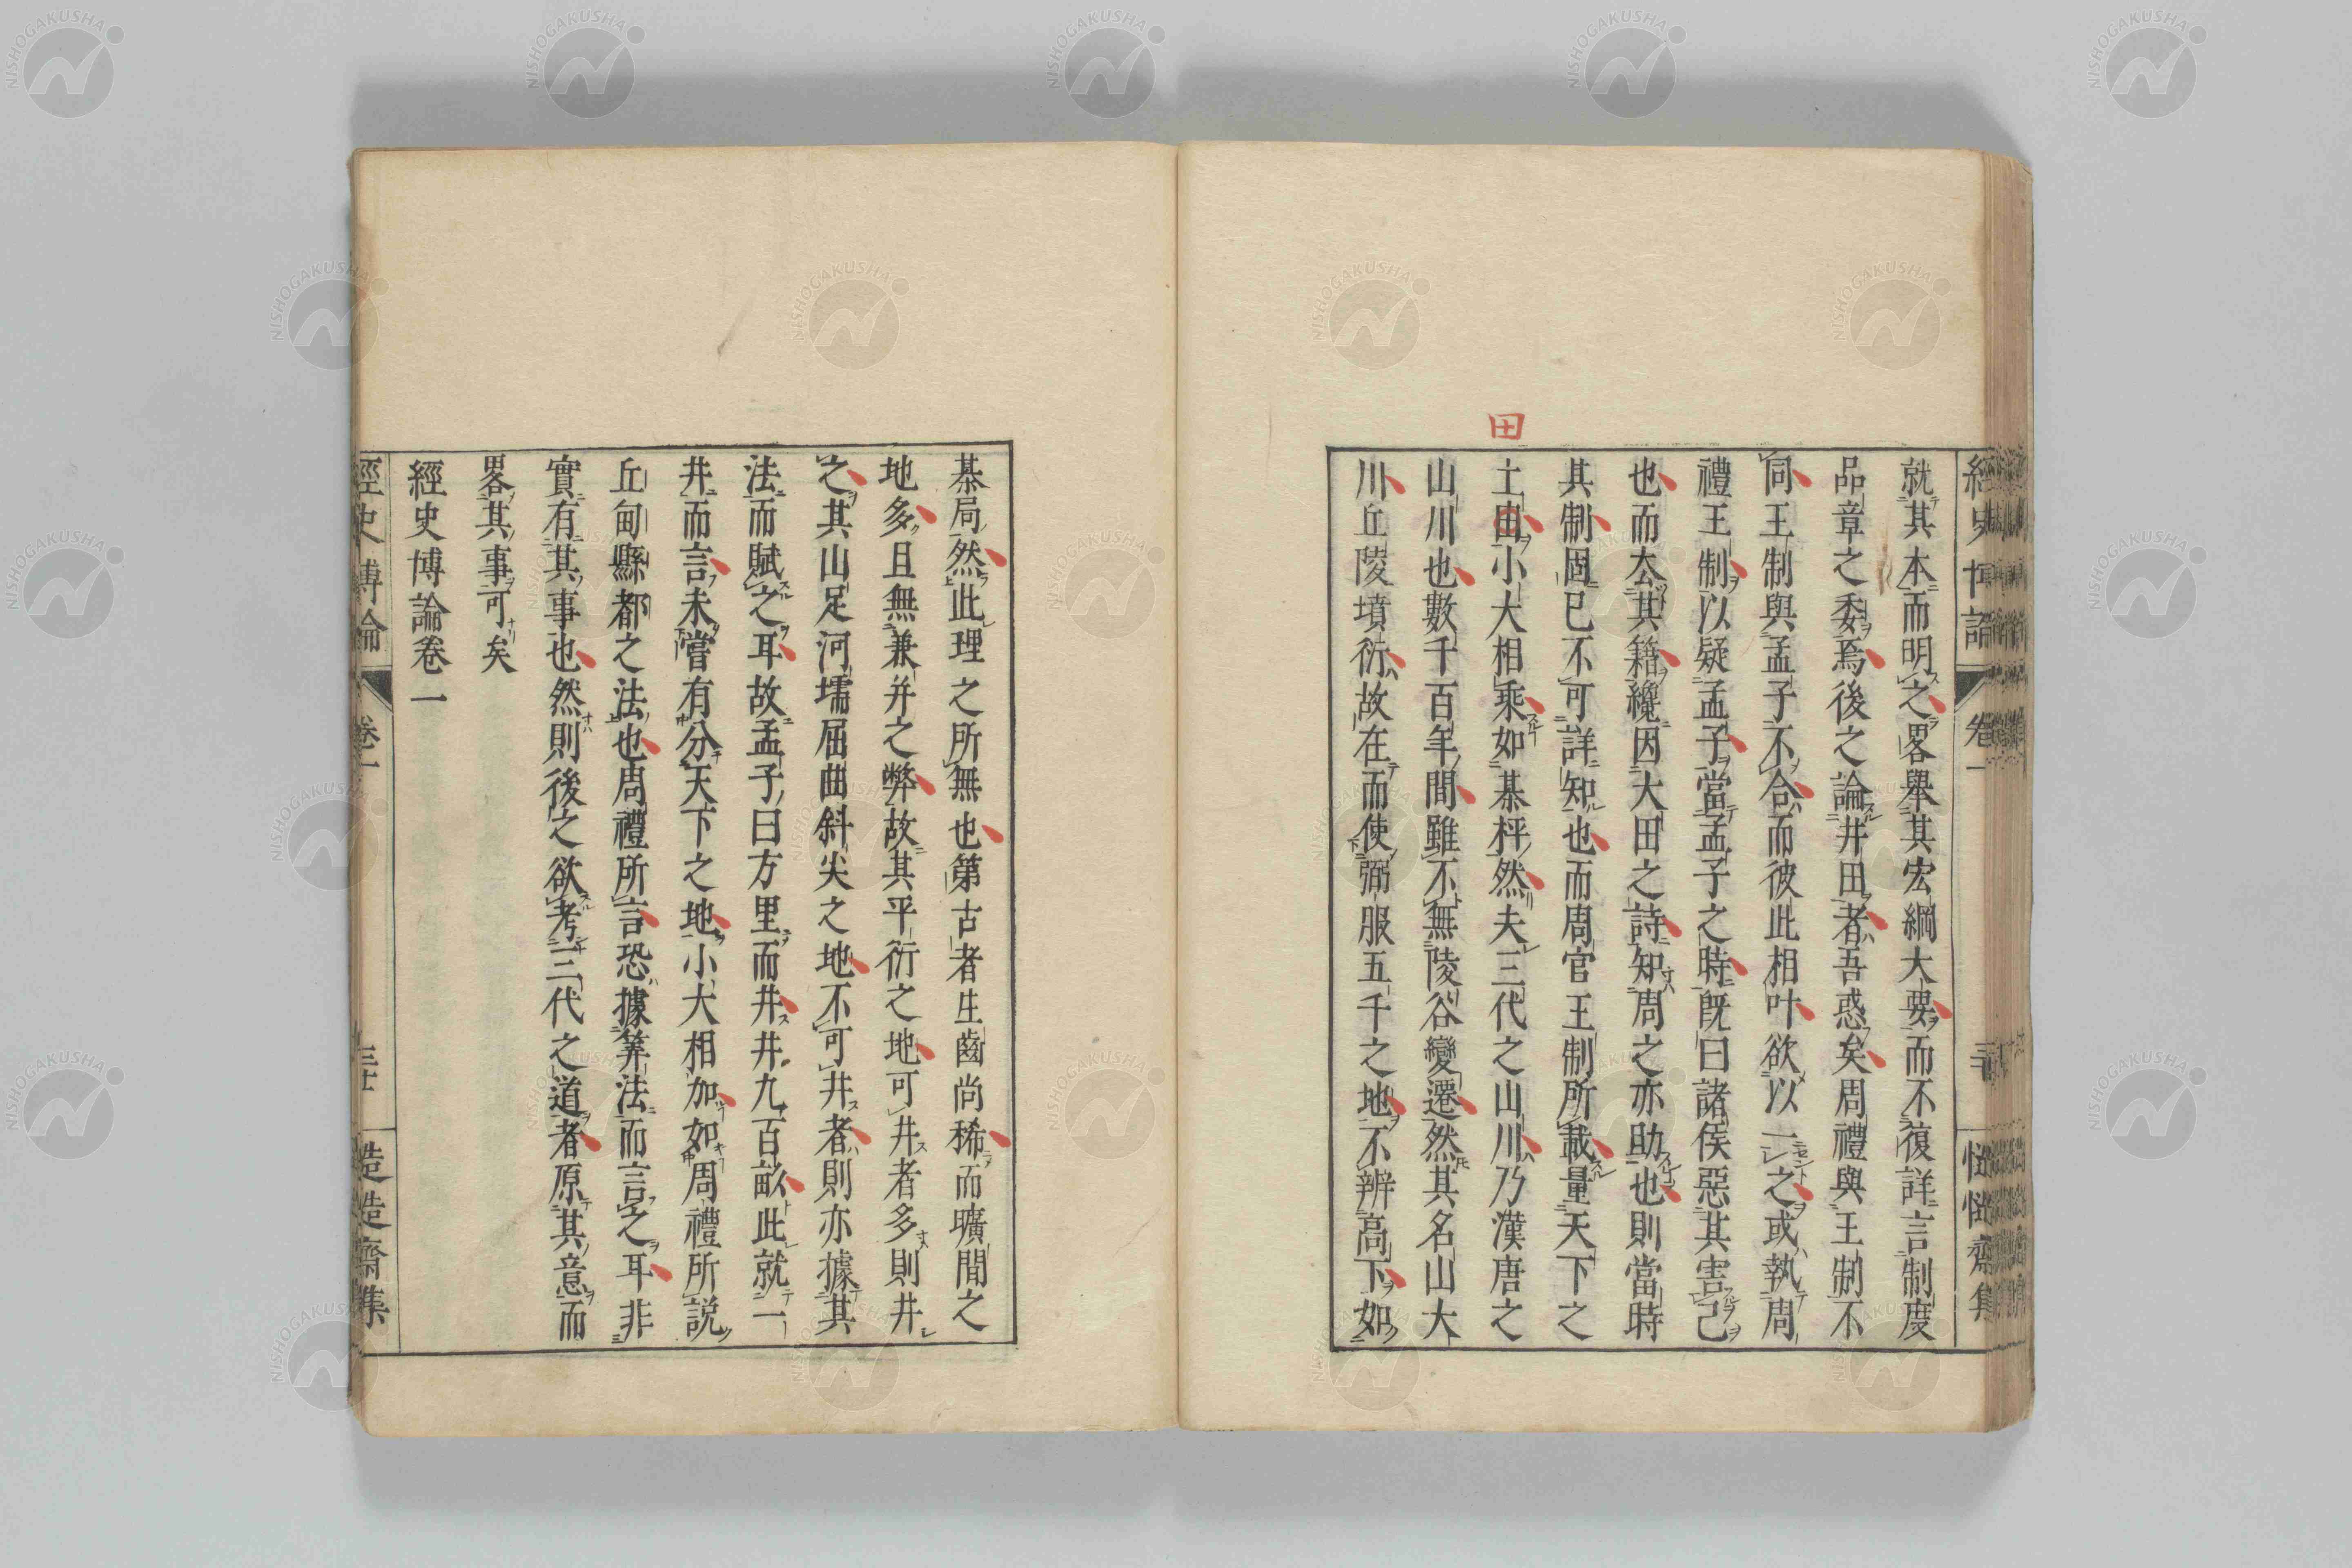 田
就其本而明之畧舉其宏綱大要而不復詳言制度
品章之委焉後之論井田者吾惑矣周禮與王制不
同王制與孟子不合而彼此相叶欲以一之或執周
禮王制以疑孟子當孟子之時既曰諸侯惡其害己
也而去其籍纔因大田之詩知周之亦助也則當時
其制固已不可詳知也而周官王制所載量天下之
土田小大相乘如棊枰然夫三代之山川乃漢唐之
山川也數千百年間雖不無陵谷變遷然其名山大
川丘陵墳衍故在而使弼服五千之地不辨高下如
棊局然此理之所無也第古者生齒尚稀而曠間之
地多且無兼并之弊故其平衍之地可井者多則井
之其山足河壖屈曲斜尖之地不可井者則亦據其
法而賦之耳故孟子曰方里而井井九百畝此就一
井而言未嘗有分天下之地小大相加如周禮所説
丘甸縣都之法也周禮所言恐據筭法而言之耳非
實有其事也然則後之欲考三代之道者原其意而
畧其事可矣
經史博論卷一
經史博論
卷一
三十一
慥慥齋集
NISHOGAKUSHA